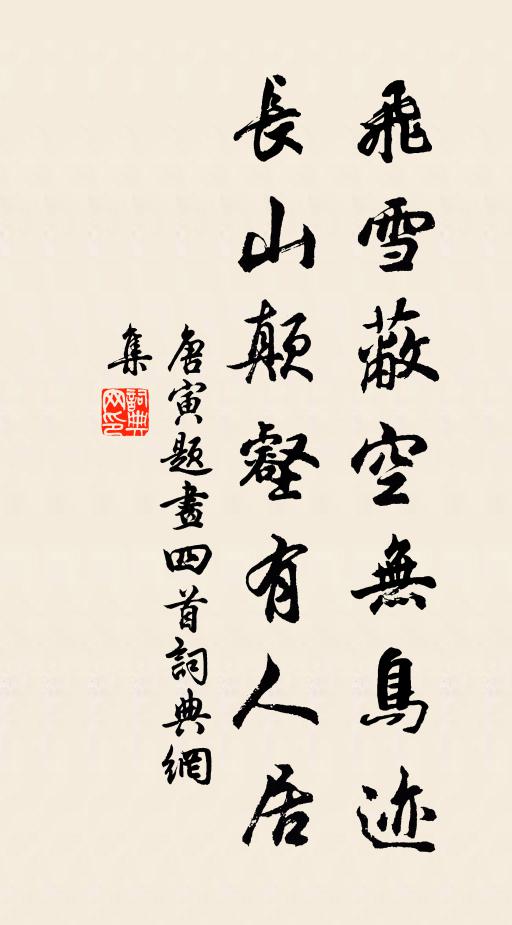 飛雪蔽空無鳥迹
長山顛壑有人居
唐寅題畫四首詞典網
集
詞典
网印